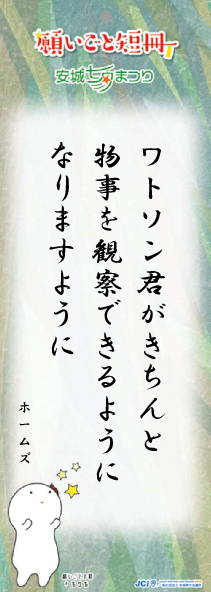 願いごと短冊
安城七夕まつり
ワトソン君がきちんと
物事を観察できるように
なりますように
ホームズ
JCI